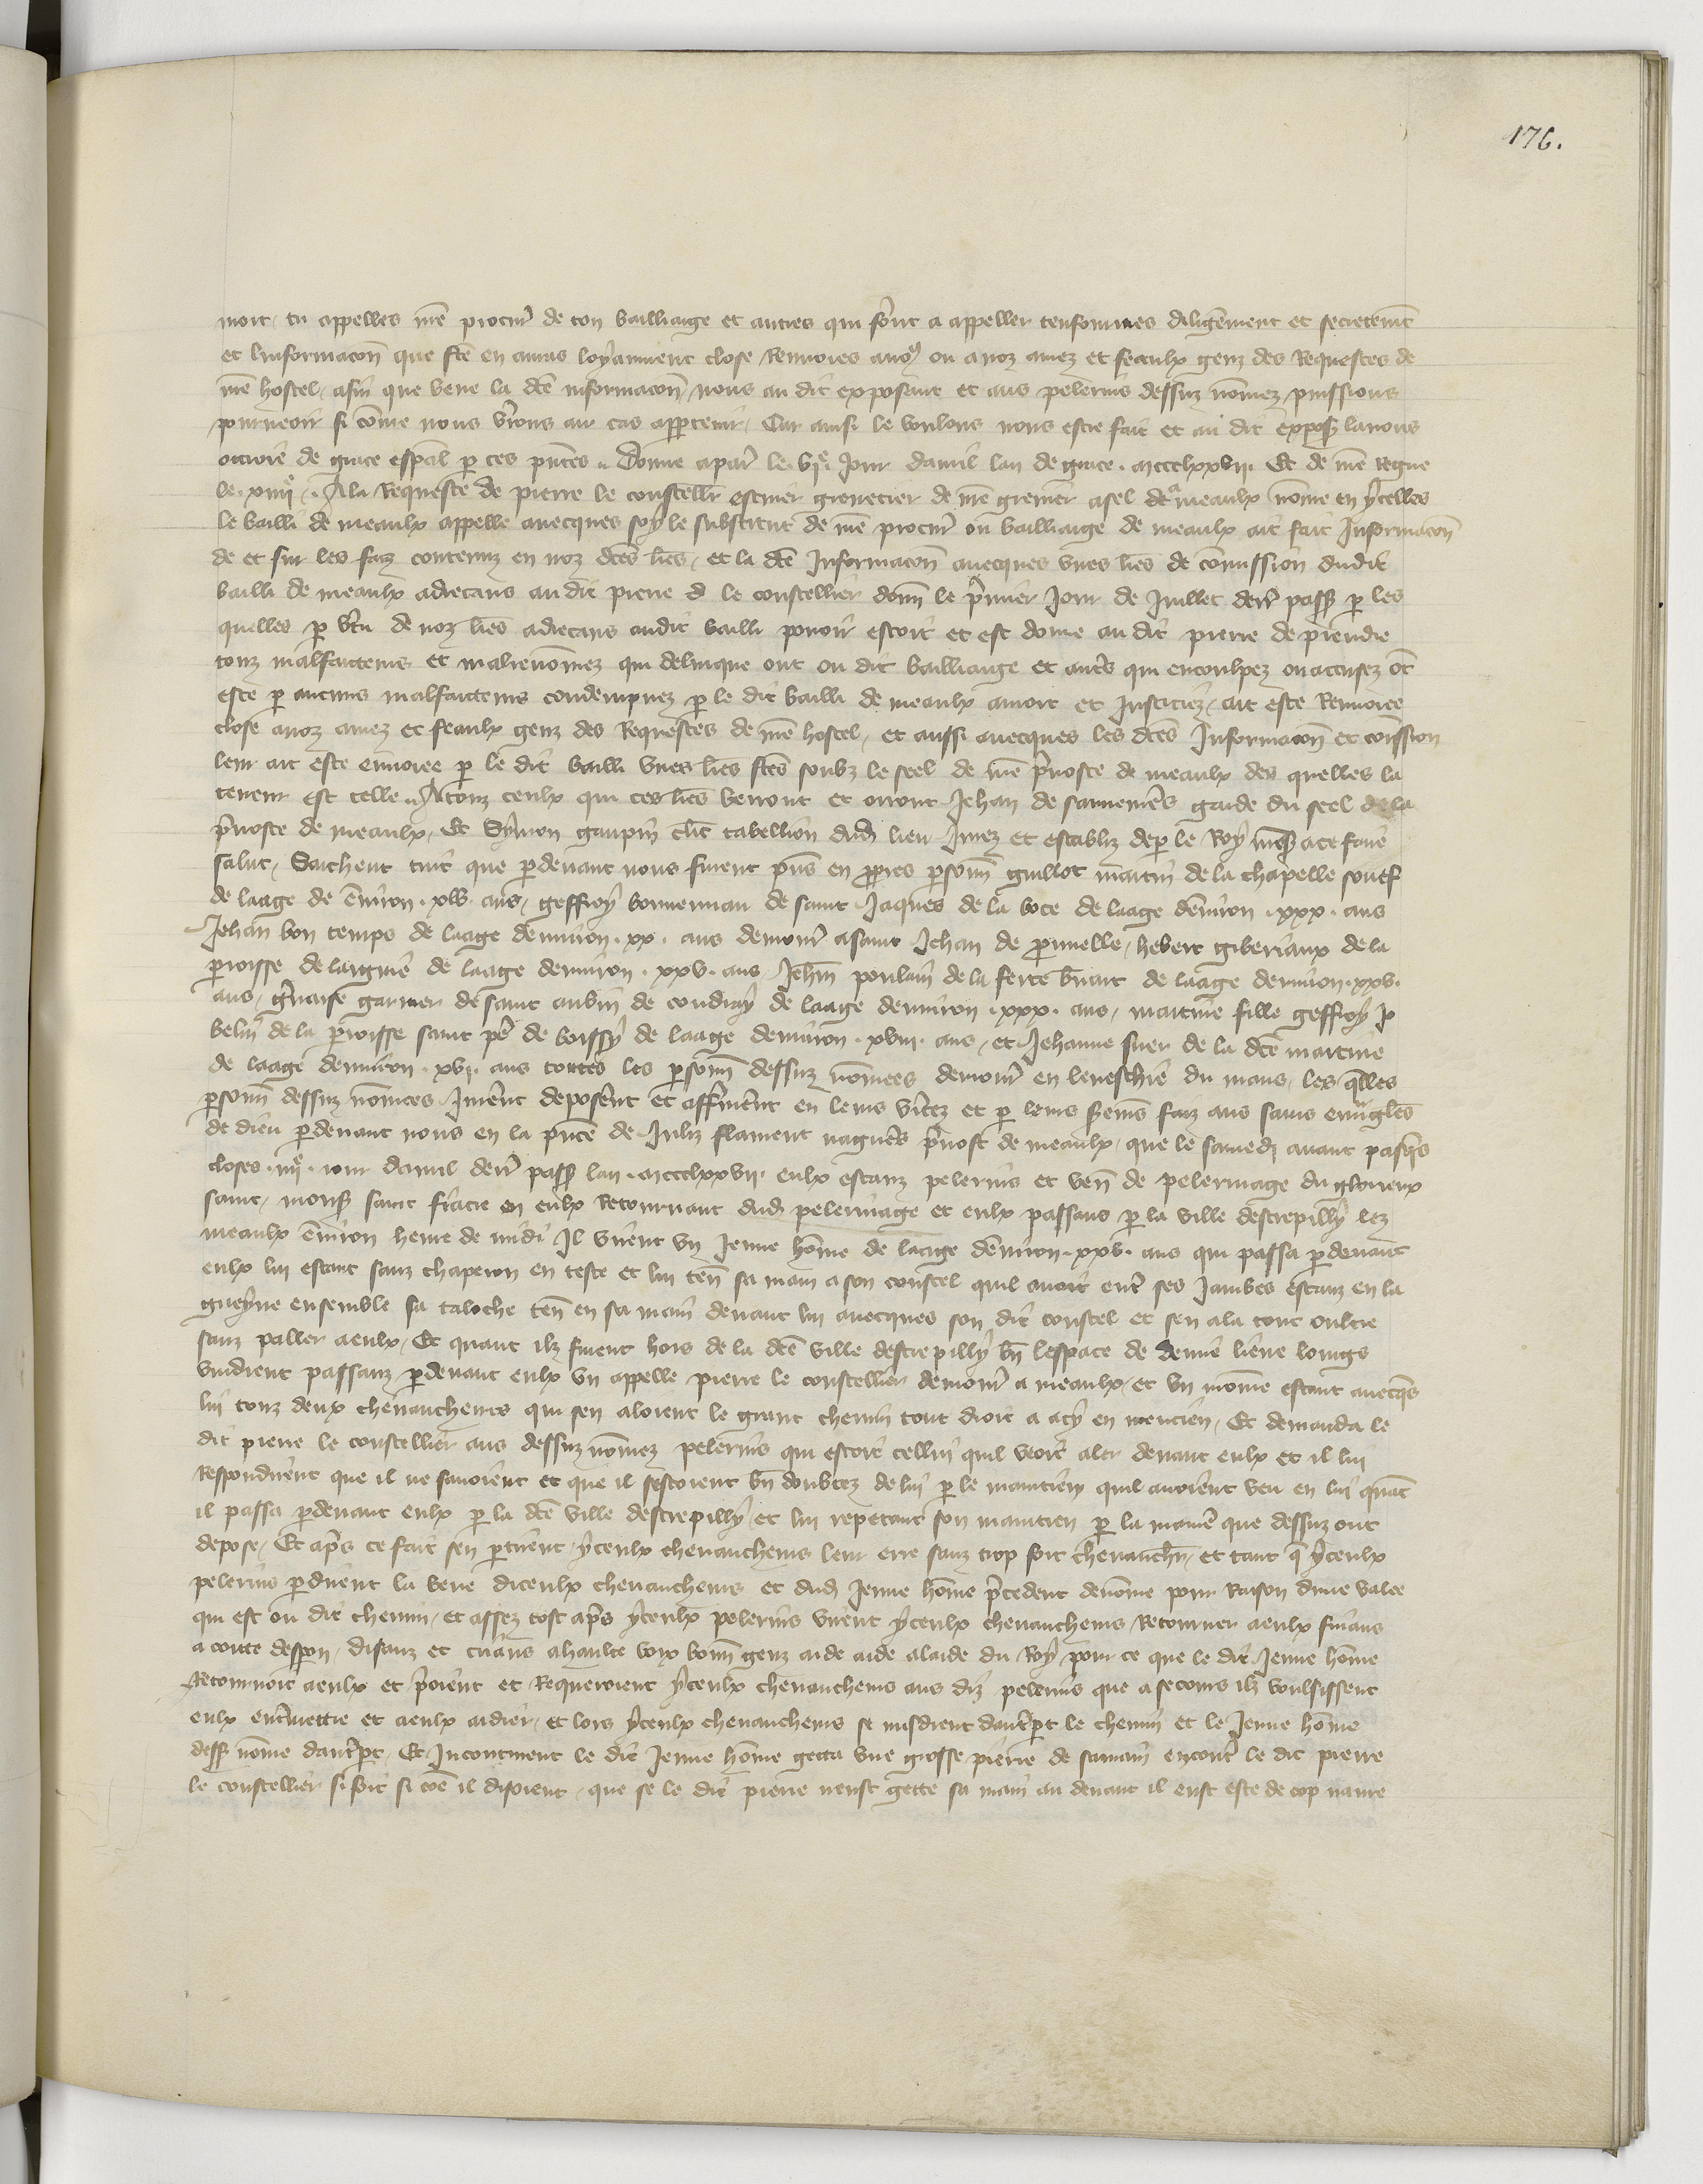 176.
mort, tu appelles nre procur de ton bailliage et autres qui seront a appeller tenformes diligemment et secretement
et linformacon que fte en auras loyaument close renvoies a nous ou a noz amez et feaulx genz des Requestes de
nre hostel, afin que veue la dce informacon, nous au dit exposant et aus pelerins dessuz nommez puissions
pourveoir si comme nous verrons au cas appartenir, Car ainsi le voulons nous estre fait et au dit exposant lavons
ottroie de grace espal par ces pntes. Donne a paris le VIIe jour davril lan de grace mccclxxvii. Et de nre Regne
le xiiije. A la Requeste de pierre le coustellier escuier grenetier de nre grenier a sel de meaulx nomme en ycelles
le bailli de meaulx appelle avecques soy le substitut de nre procur ou bailliage de meaulx ait fait Informacon
de et sur les faiz contenuz en noz dces lres, et la dce Informacon avecques unes lres de commission dudit
bailli de meaulx adrecans au dit pierre le coustellier donn le premier jour de Juillet derr passe par les
quelles par vertu de noz lres adrecans audit bailli povoir estoit et est donne au dit pierre de prendre
touz malfaicteurs et malrenommez qui delinque ont ou dit bailliage et autrs qui encoulpez ou accusez ont
este par aucuns malfaicteurs condempnez par le dit bailli de meaulx a mort et Justiciez, ait este Renvoiee
close a noz amez et feaulx genz des Requestes de nre hostel, et aussi avecques les dces Informacon et comission
leur ait este envoiee par le dit bailli unes lres ftes soubz le seel de nre prevoste de meaulx des quelles la
teneur est telle. A touz ceulx qui ces lres verront et orront Jehan de garde du seel de la
prevoste de meaulx, Et Symon gaupin clerc tabellion dud lieu Jurez et establiz de par le Roy nres a ce faire
salut, Sachent tuit que par devant nous furent pns en propres personn guillot martin de la chapelle souef
de laage de environ xlv ans, geffroy bonnemau de saint Jaques de la boce de laage denviron xxx ans
Jehan bon temps de laage denviron xx ans demour a saint Jehan de promelle, hebert giberiaux de la
parroisse de de laage denviron xxv ans, Jehan poulain de la ferte bnart de laage denviron xxv
ans, gervaise garnier de saint aubin de coudray de laage denviron xxx ans, martine fille geffroy
belin de la parroisse saint pere de boissy de laage denviron xviii ans, et Jehanne suer de la dce martine
de laage denviron xvi ans toutes les personn dessuz nommees demour en leveschie du mans, les qlles
personn dessuz nommees Jurerent deposerent et affermerent en leurs veritez et par leurs sermens faiz aus sains euvangles
de dieu par devant nous en la pnce de Juliz flament nagueres prevost de meaulx, que le samedi avant pasqs
closes iiije jour davril derr passe lan mccclxxvii eulx estanz pelerins et ven de pelerinage du glorieux
saint, mons saint fiacre en eulx Retournant dud pelerinage et eulx passans par la ville destrepilly lez
meaulx environ heure de midi Il virent un Jeune homme de laage denviron xxv ans qui passa par devant
eulx lui estant sanz chaperon en teste et lui ten sa main a son coustel quil avoit entre ses Jambes estanz en la
gueyne ensemble sa taloche ten en sa main devant lui avecques son dit coustel et sen ala tout oultre
sanz paller a eulx, Et quant ilz furent hors de la dce ville destrepilly bn lespace de demie lieue loings
vindrent passanz par devant eulx un appelle pierre le coustellier demour a meaulx, et un moine estant avecqs
lui touz deux chevaucheurs qui sen aloient le grant chemin tout droit a acy en mercien, Et demanda le
dit pierre le coustellier aus dessuz nommez pelerins qui estoit cellui quil veoit aler devant eulx et il lui
Respondirent que il ne savoient et que il sestoient bn doubtez de lui par le maintien quil avoient veu en lui quant
il passa par devant eulx par la dce ville destrepilly et lui repetant son maintien par la maniere que dessuz ont
depose, Et apres ce fait sen partirent yceulx chevaucheurs leur erre sanz trop fort chevauchier, et tant que yceulx
pelerins perdirent la veue diceulx chevaucheurs et dud Jeune homme precedent denomme pour Raison dune valee
qui est ou dit chemin, et assez tost apres yceulx pelerins virent yceulx chevaucheurs Retourner a eulx fuians
a coite desperon, disanz et crians a haulte voix bonn genz aide aide a laide du Roy, pour ce que le dit Jeune homme
Retournoit a eulx et prioient et Requeroient yceulx chevaucheurs aus diz pelerins que a secours ilz voulsissent
eulx entremettre et a eulx aidier, et lors yceulx chevaucheurs se misdrent dautre part le chemin et le Jeune homme
dess nomme dautre part, Et Incontinent le dit Jeune homme getta une grosse pierre de sa main encontre le dit pierre
le coustellier si fort si come il disoient, que se le dit pierre neust gette sa main au devant il eust este de cop navre